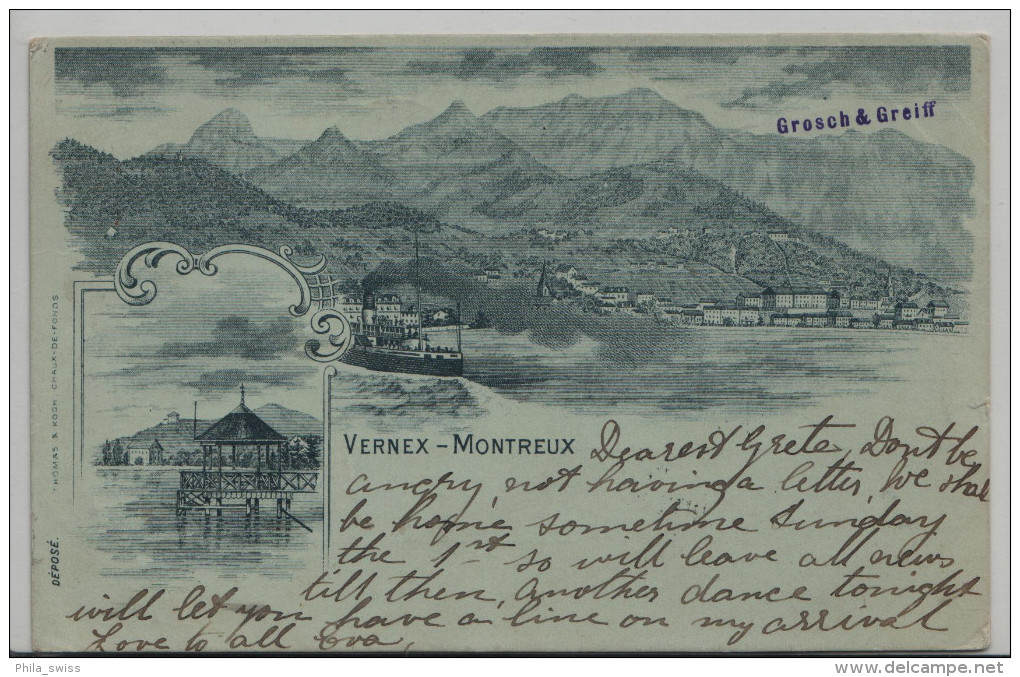 Grosch & Greiff
THOMAS & KOCH CHAUX-DE-FONDS
DÉPOSÉ.
VERNEX - MONTREUX
Dearest Grete, Dont be
angry, not having a letter, We shal
be home sometime Sunday
the 1st so will leave all news
till then, another dance tonight
will let you have a line on my arrival
Love to all Eva,
Phila_swiss
www.delcampe.net